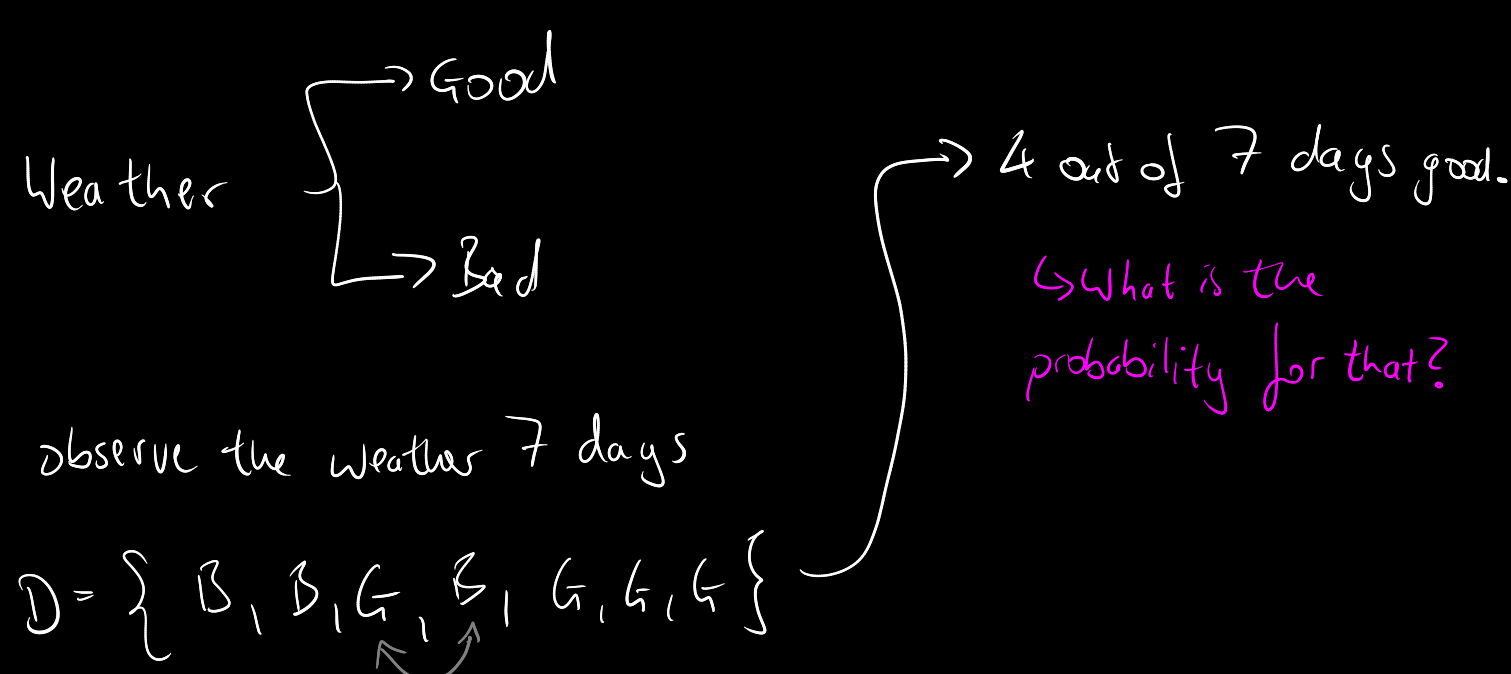 Weather
Good
Bad
observe the weather 7 days
D = { B, B, G, B, G, G, G }
4 out of 7 days good.
↳ What is the
probability for that?